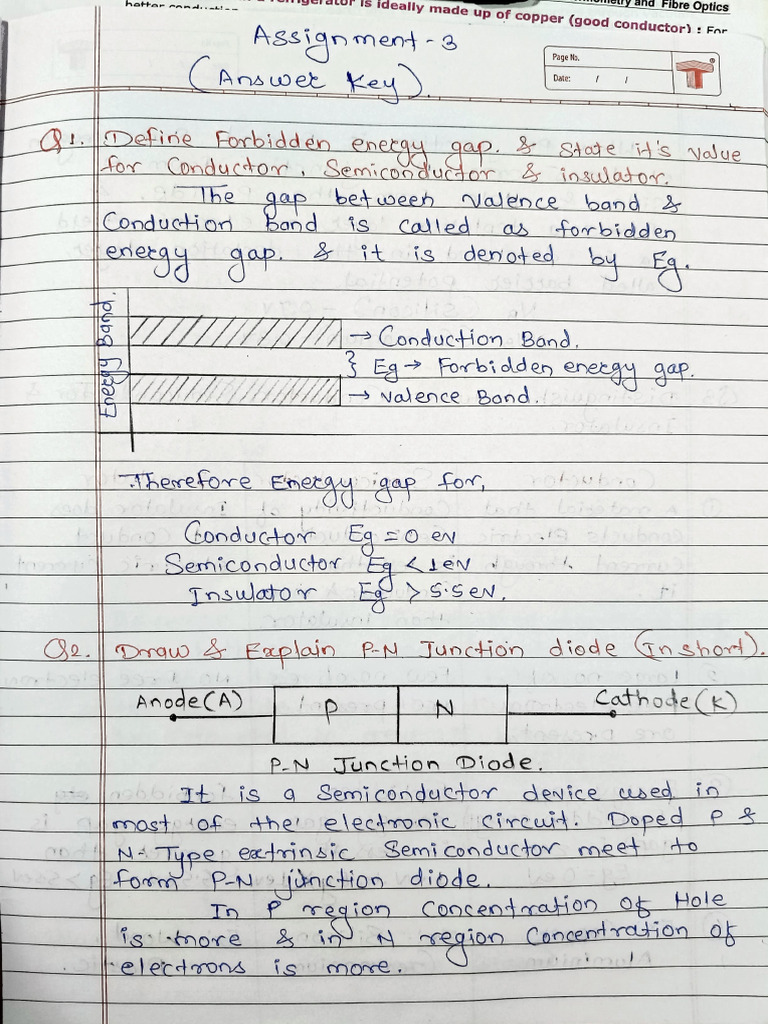 refrigerator is ideally made up of copper (good conductor) : For
and Fibre Optics
Assignment - 3
(Answer Key).
Page No.
Date: / /
T
Q1. Define Forbidden energy gap. & state it's value
for Conductor, Semiconductor & insulator.
The gap between valence band &
Conduction band is called as forbidden
energy gap. & it is denoted by Eg.
Energy Band.
→ Conduction Band.
} Eg → Forbidden energy gap.
→ valence Band.
Therefore Energy gap for,
Conductor Eg = 0 eV
Semiconductor Eg < 1eV
Insulator Eg > 5.5eV.
Q2. Draw & Explain P-N Junction diode (In short).
Anode(A) P N Cathode(K)
P-N Junction Diode.
It is a Semiconductor device used in
most of the electronic circuit. Doped P &
N-Type extrinsic Semiconductor meet to
form P-N junction diode.
In P region Concentration of Hole
is more & in N region Concentration of
electrons is more.